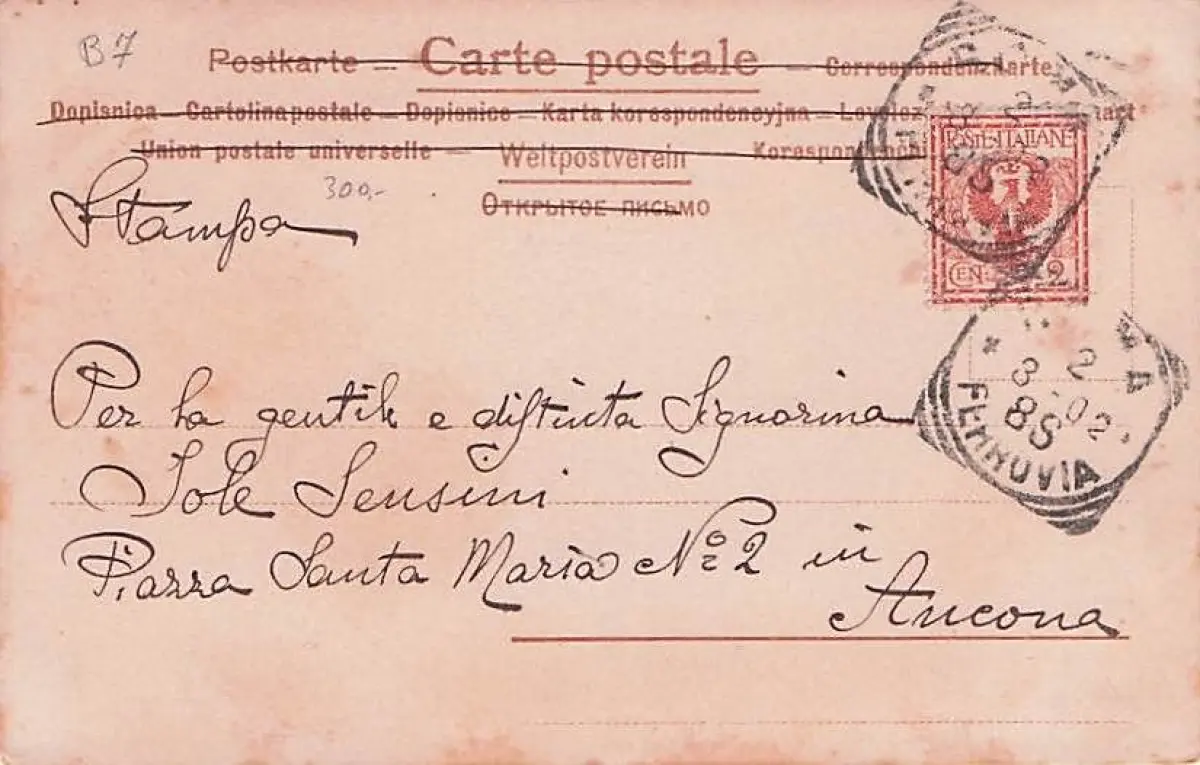 B7
Postkarte – Carte postale – Correspondenzkarte
Dopisnica – Cartolina postale – Dopisnice – Karta korespondencyjna –
Union postale universelle – Weltpostverein
Открытое письмо
300,-
Stampa
POSTE·ITALIANE
CEN 2
3 2
85 02
FERROVIA
Per la gentile e distinta Signorina
Iole Sensini
Piazza Santa Maria No 2 in
Ancona